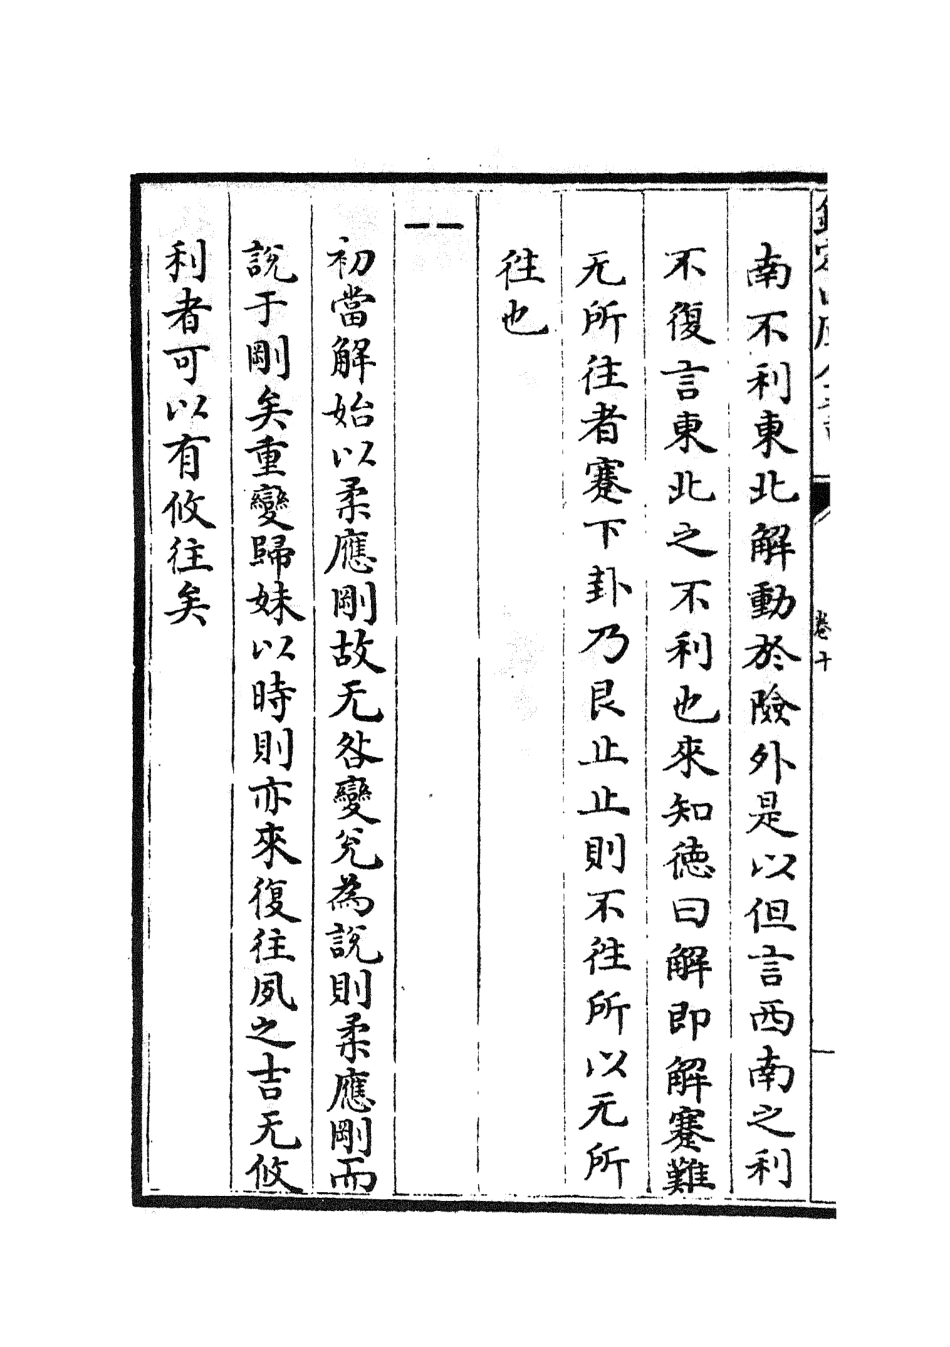 南不利東北解動於險外是以但言西南之利
不復言東北之不利也來知德曰解即解蹇難
无所往者蹇下卦乃艮止止則不徃所以无所
徃也
初當解始以柔應剛故无咎變兊為説則柔應剛而
説于剛矣重變歸妹以時則亦來復往夙之吉无攸
利者可以有攸往矣
卷十